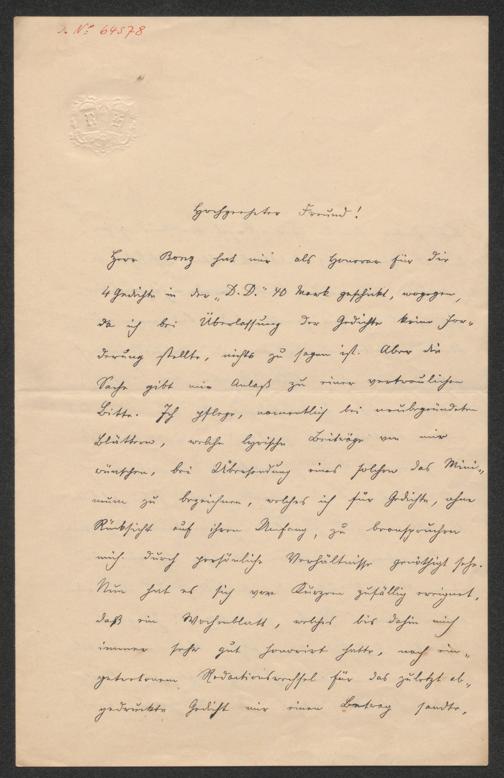 J. No 64578
Hochgeehrter Freund!
Herr Bong hat mir als Honorar für die
4 Gedichte in der „D. D.“ 40 Mark geschickt, wogegen,
da ich bei Überlassung der Gedichte keine For-
derung stellte, nichts zu sagen ist. Aber die
Sache gibt mir Anlaß zu einer vertraulichen
Bitte. Ich pflege, namentlich bei neubegründeten
Blättern, welche lyrische Beiträge von mir
wünschen, bei Übersendung eines solchen das Mini-
mum zu bezeichnen, welches ich für Gedichte, ohne
Rücksicht auf ihren Umfang, zu beanspruchen
mich durch persönliche Verhältnisse genöthigt sehe.
Nun hat es sich vor Kurzem zufällig ereignet,
daß ein Wochenblatt, welches bis dahin mich
immer sehr gut honorirt hatte, nach ein-
getretenem Redactionswechsel für das zuletzt ab-
gedruckte Gedicht mir einen Betrag sandte,